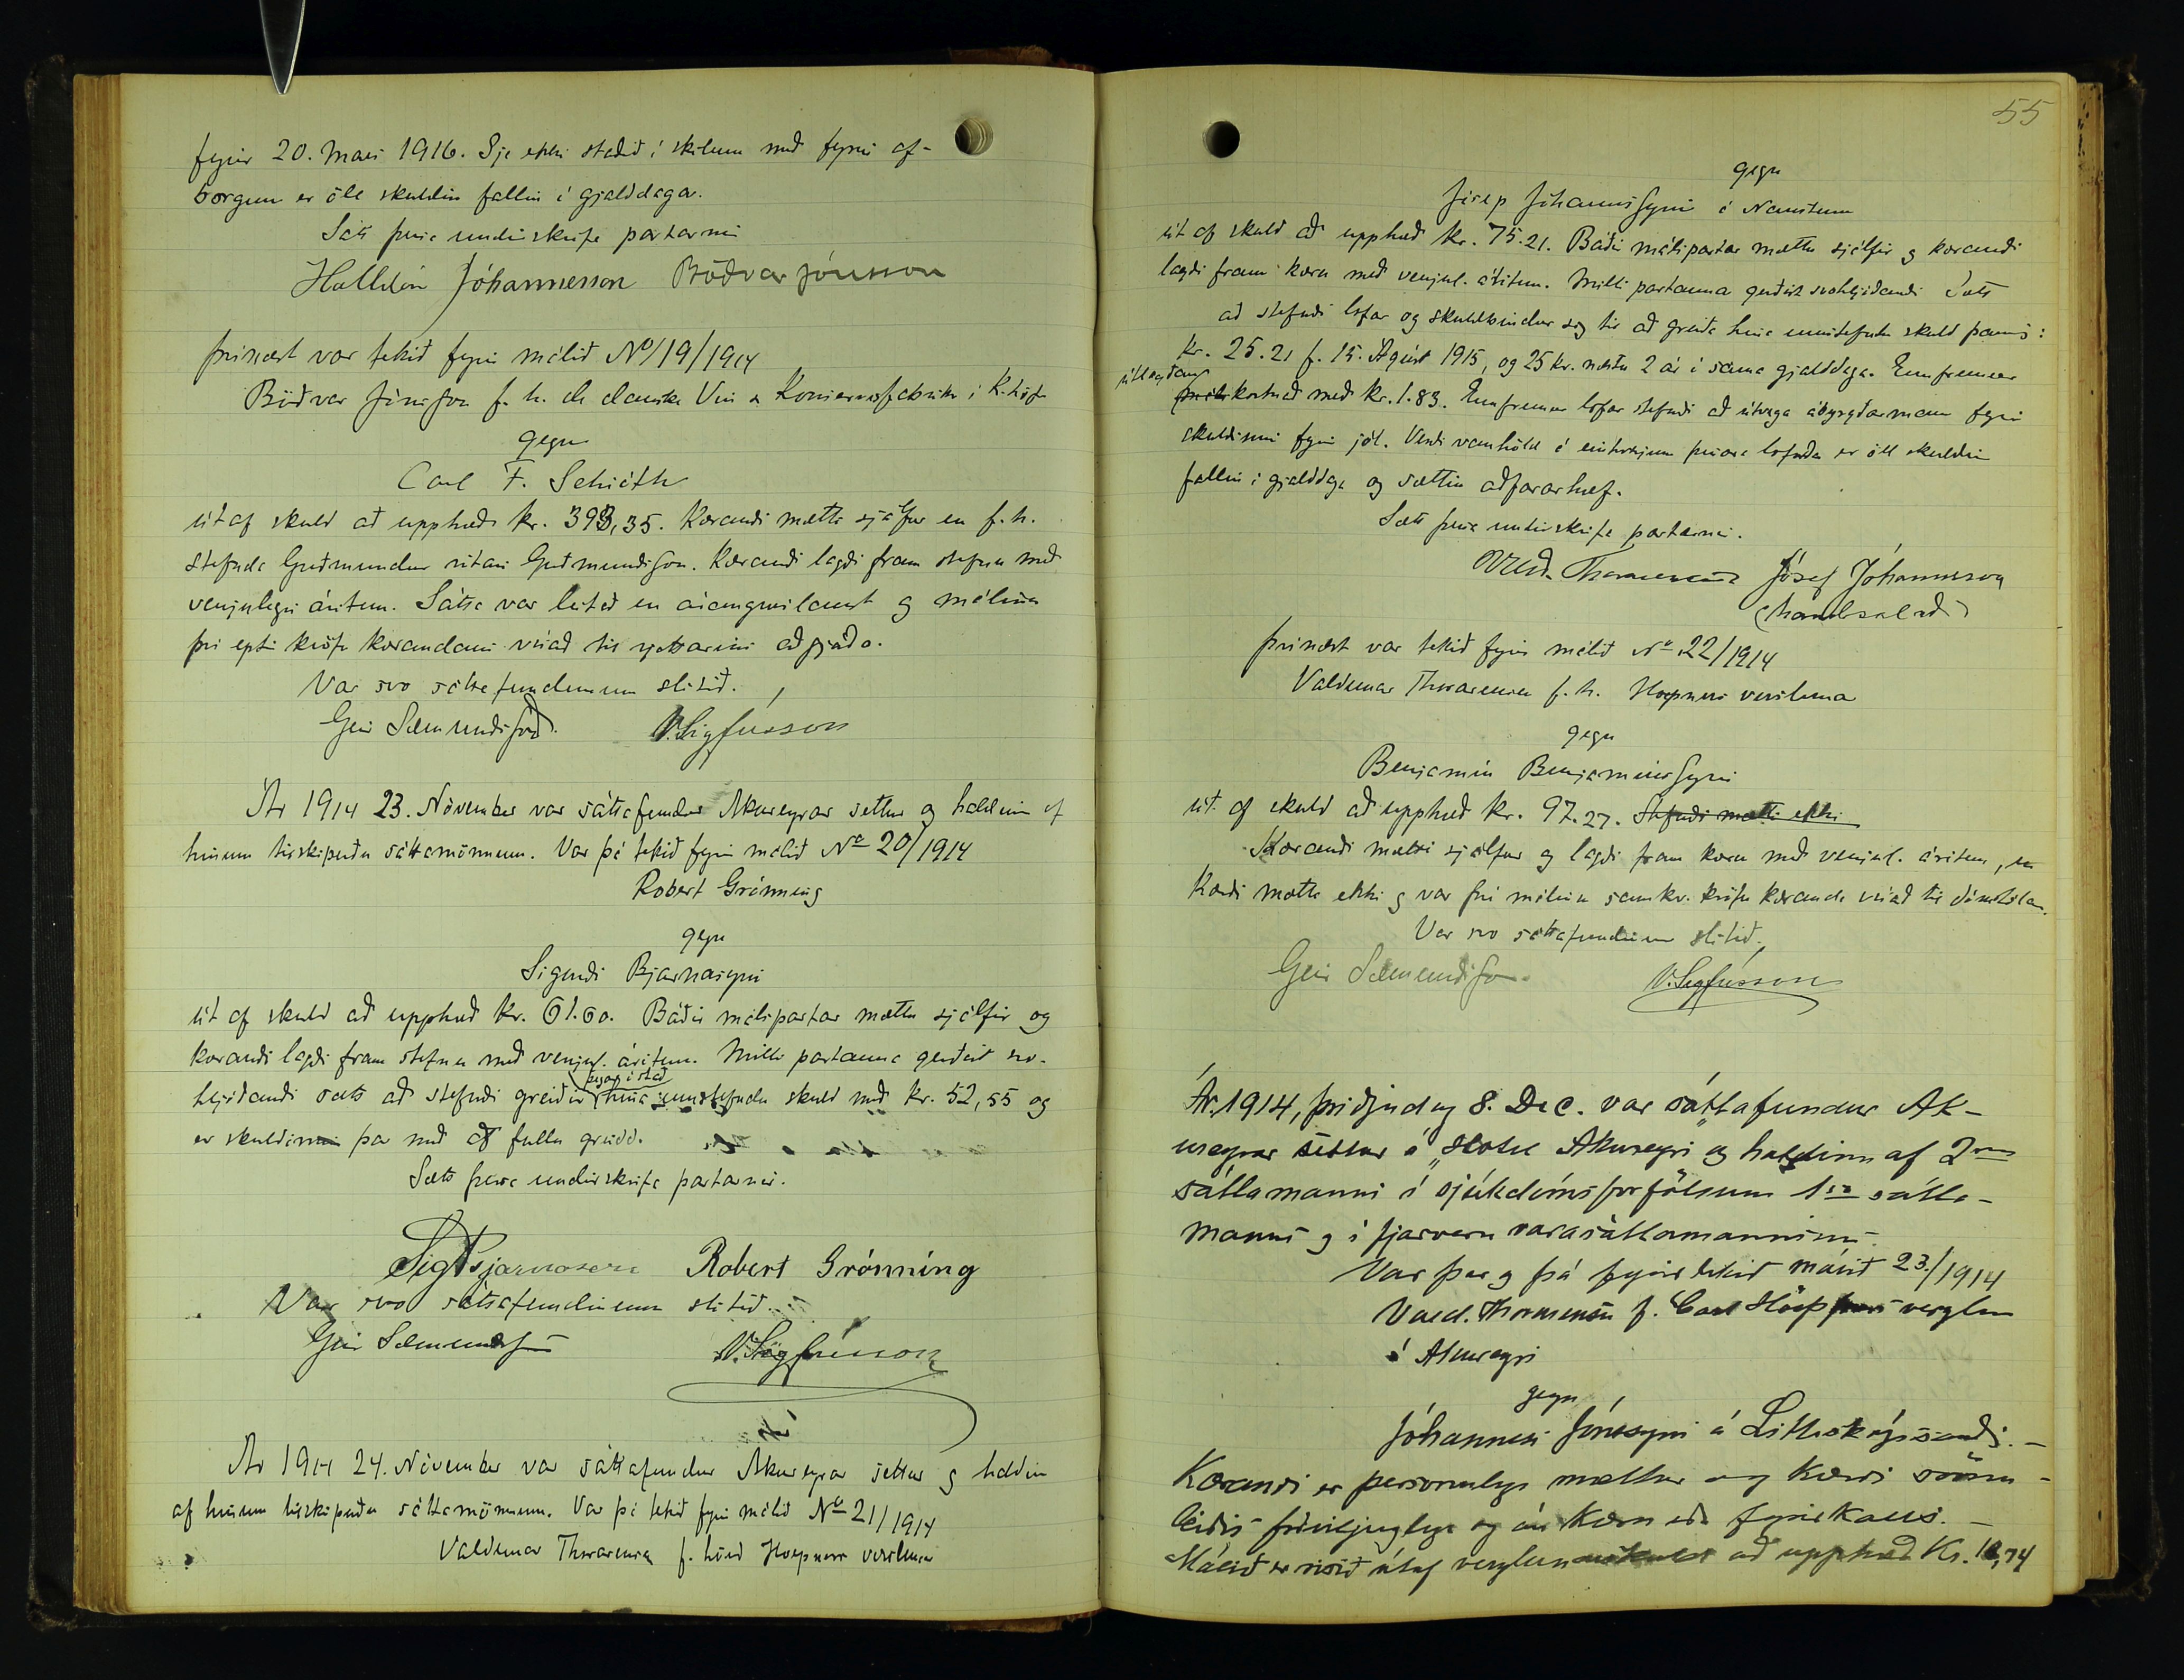 fyrir 20. Mars 1916. Sje ekki staðið í skilum með fyrri af-
borgun er öll skuldin fallin í gjalddaga.
Sátt þessa undirskrifa partarnir
Halldór Jóhannesson Böðvar Jónsson
þvínæst var tekið fyrir málið No/19/1914
Böðvar Jónsson f. h. de danske Vin & Konservesfabrikker i K.höfn
gegn
Carl F. Schiöth
út af skuld að upphæð kr. 393,35. Kærandi mætti sjálfur en f. h.
stefnda Guðmundur ritari Guðmundsson. Kærandi lagði fram stefnu með
venjulegri áritun. Sátta var leitað en árangurslaust og málinu
því eptir kröfu kærandans vísað til rjettarins aðgjörða.
Var svo sáttafundinum slitið.
Geir Sæmundsson. V. Sigfússon
Ár 1914 23. Nóvember var sáttafundur Akureyrar settur og haldinn af
hinum tilskipuðu sáttamönnum. Var þá tekið fyrir málið No 20/1914
Robert Grönning
gegn
Sigurði Bjarnasyni
út af skuld að upphæð kr. 61.60. Báðir málspartar mættu sjálfir og
kærandi lagði fram stefnu með venjul. áritun. Milli partanna gerðist svo-
hljóðandi sátt að stefndi greiðir þegar í stað hina umstefndu skuld með kr. 52,55 og
er skuldin þar með að fullu greidd.
Sátt þessa undirskrifa partarnir.
Sig Bjarnason Robert Grönning
Var svo sáttafundinum slitið.
Geir Sæmundsson V. Sigfússon
Ár 1914 24. Nóvember var sáttafundur Akureyrar settur og haldinn
af hinum tilskipuðu sáttamönnum. Var þá tekið fyrir málið No 21/1914
Valdimar Thorarensen f. hönd Hoepners verslunar
55
gegn
Jósep Jóhannssyni á Naustum
út af skuld að upphæð kr. 75.21. Báðir málspartar mættu sjálfir og kærandi
lagði fram kæru með venjul. áritun. Milli partanna gerðist svohljóðandi Sátt
að stefndi lofar og skuldbindur sig til að greiða hina umstefndu skuld þannig:
Kr. 25.21 f. 15. Ágúst 1915, og 25 kr. næstu 2 ár í sama gjalddaga. Ennfremur
útlagðan kostnað með kr. 1.83. Ennfremur lofar stefndi að útvega ábyrgðarmann fyrir
skuldinni fyrir jól. Verði vanhöld á einhverjum þessara loforða er öll skuldin
fallin í gjalddaga og sættin aðfararhæf.
Sátt þessa undirskrifa partarnir.
Vald. Thorarensen Jósef Jóhannesson
(handsalað)
þvínæst var tekið fyrir málið No 22/1914
Valdimar Thorarensen f. h. Hoepners verslunar
gegn
Benjamín Benjamínssyni
út af skuld að upphæð kr. 97.27. Stefndi mætti ekki
Kærandi mætti sjálfur og lagði fram kæru með venjul. áritun, en
Kærði mætti ekki og var því málinu samkv. kröfu kæranda vísað til dómstóla.
Var svo sáttafundinum slitið.
Geir Sæmundsson. V. Sigfússon
Ár 1914, þriðjudag 8. Dec. var sáttafundur Ak-
ureyrar settur á „Hotel Akureyri og haldinn af 2rs
sáttamanni í sjúkdómsforföllum 1sta sátta-
manns og í fjarveru varasáttamannsins.
Var þar og þá fyrir tekið málið 23./1914
Vald. Thorarensen f. Carl Höepfners verzlun
á Akureyri
gegn
Jóhannesi Jónssyni á Litlaskógssandi. —
Kærandi er personulega mættur og Kærði sömu-
leiðis fríviljuglega og án Kæru eða fyrirkalls. —
Málið er risið útaf verzlunarskuld að upphæð Kr. 18,74